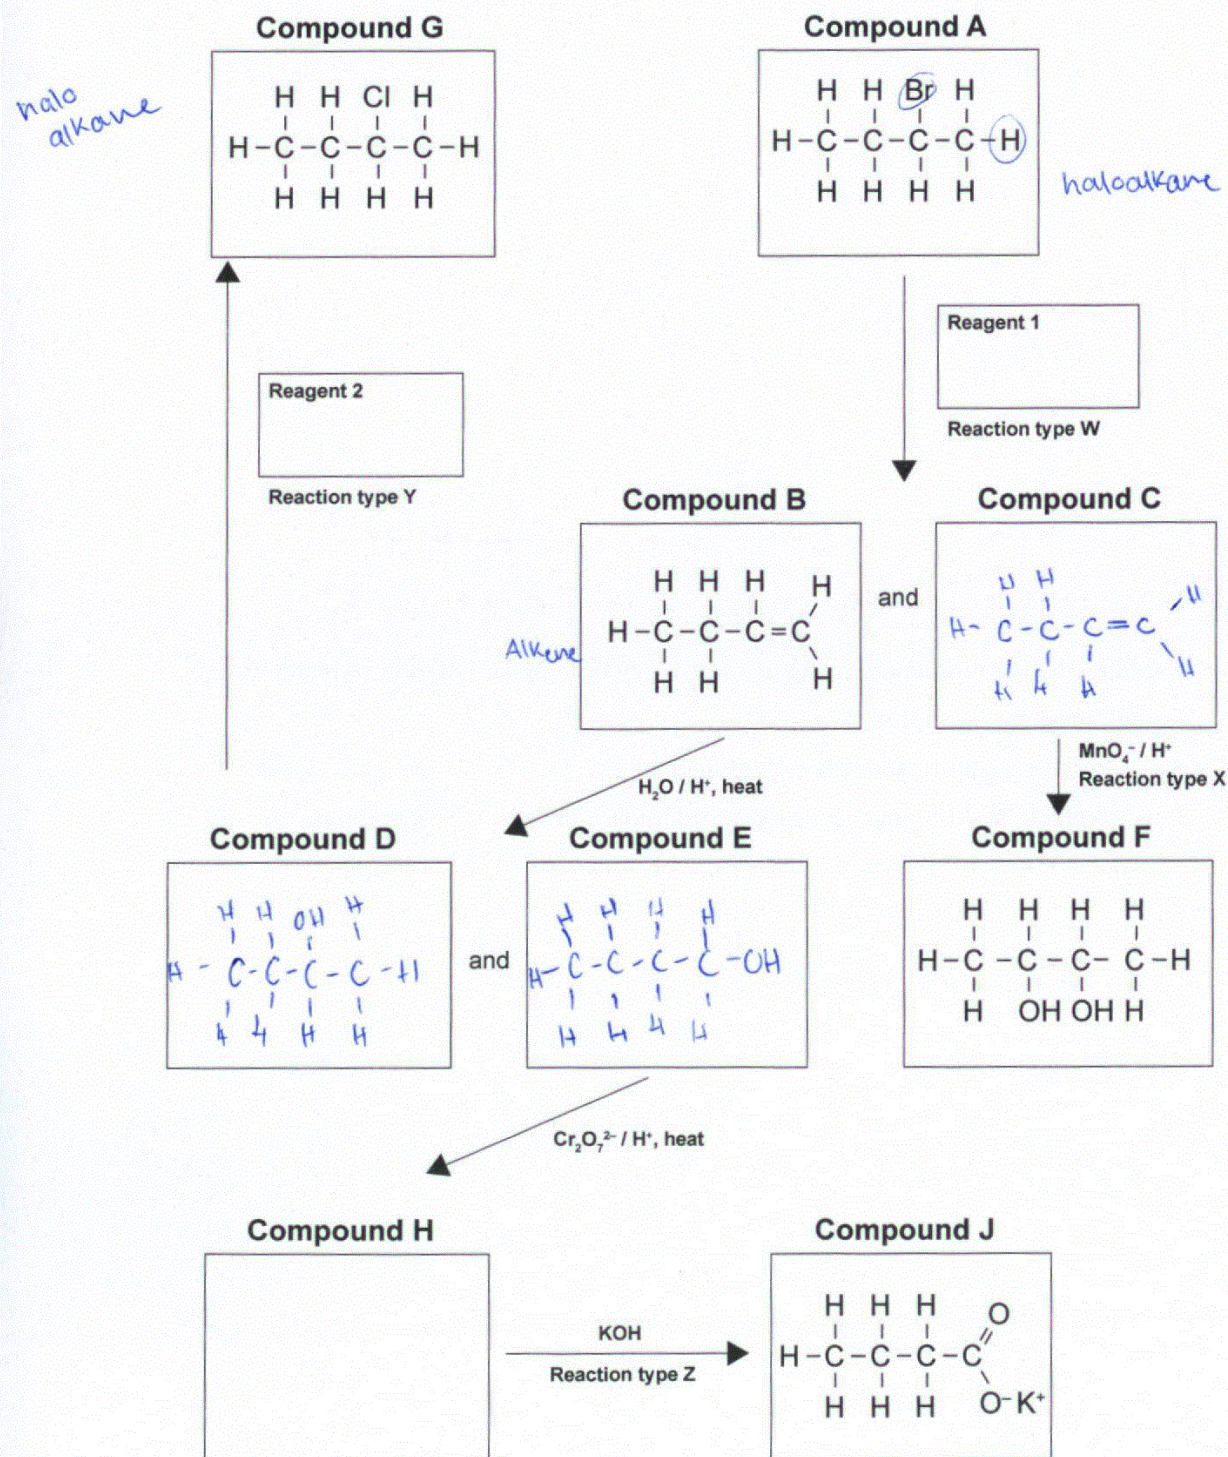 Compound G
H H Cl H
H-C-C-C-C-H
H H H H
halo
alkane
Compound A
H H Br H
H-C-C-C-C-H
H H H H
haloalkane
Reagent 1
Reaction type W
Reagent 2
Reaction type Y
Compound B
H H H H
H-C-C-C=C
H H H
Alkene
and
Compound C
H H H
H-C-C-C=C
H H H H
H₂O / H⁺, heat
MnO₄⁻ / H⁺
Reaction type X
Compound D
H H OH H
H-C-C-C-C-H
H H H H
and
Compound E
H H H H
H-C-C-C-C-OH
H H H H
Compound F
H H H H
H-C-C-C-C-H
H OH OH H
Cr₂O₇²⁻ / H⁺, heat
Compound H
KOH
Reaction type Z
Compound J
H H H O
H-C-C-C-C
H H H O⁻K⁺